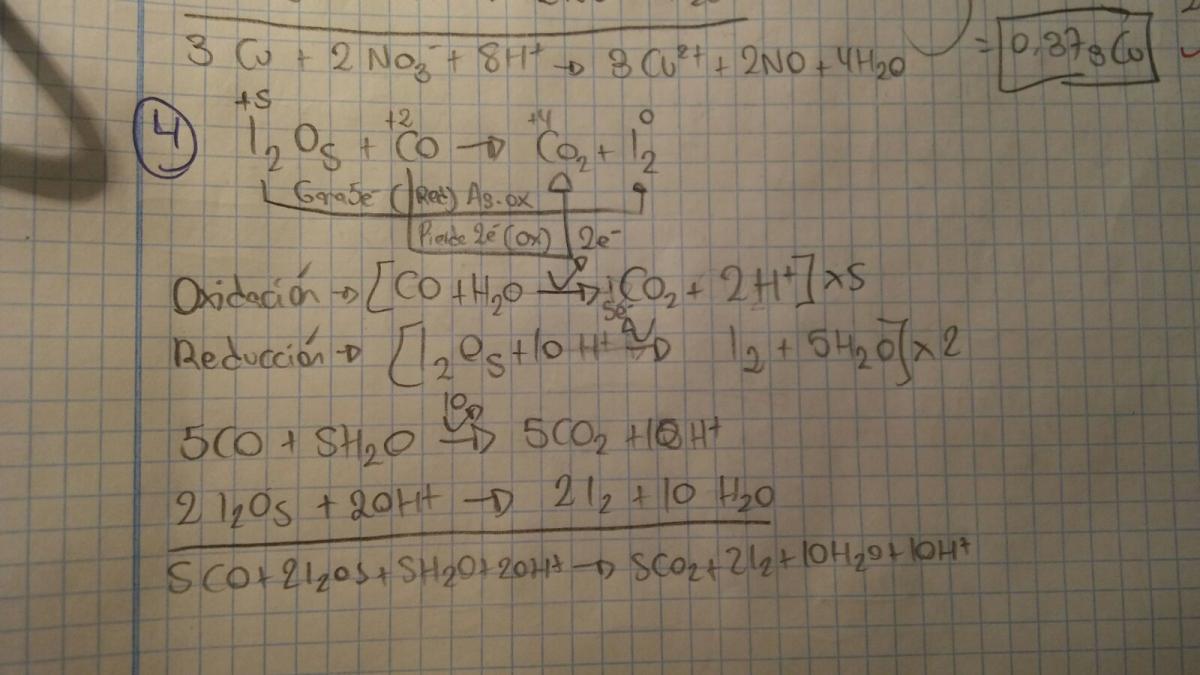 3 Cu + 2 NO₃⁻ + 8H⁺ → 3 Cu²⁺ + 2NO + 4H₂O
= 0,37g Cu
+5 +2 +4 0
4 I₂O₅ + CO → CO₂ + I₂
Gana 5e⁻ (Red) Ag. ox
Pierde 2e⁻ (Ox) 2e⁻
Oxidación → [CO + H₂O → CO₂ + 2H⁺] x5
5e⁻
Reducción → [I₂O₅ + 10 H⁺ → I₂ + 5H₂O] x 2
10
5CO + 5H₂O → 5CO₂ + 10H⁺
2 I₂O₅ + 20H⁺ → 2I₂ + 10 H₂O
5CO + 2I₂O₅ + 5H₂O + 20H⁺ → 5CO₂ + 2I₂ + 10H₂O + 10H⁺